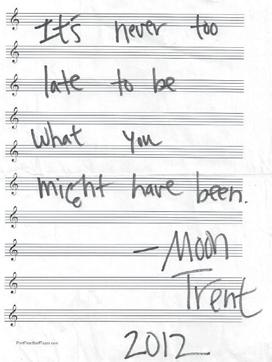 It's never too
late to be
what you
might have been.
- Moon
Trent
2012